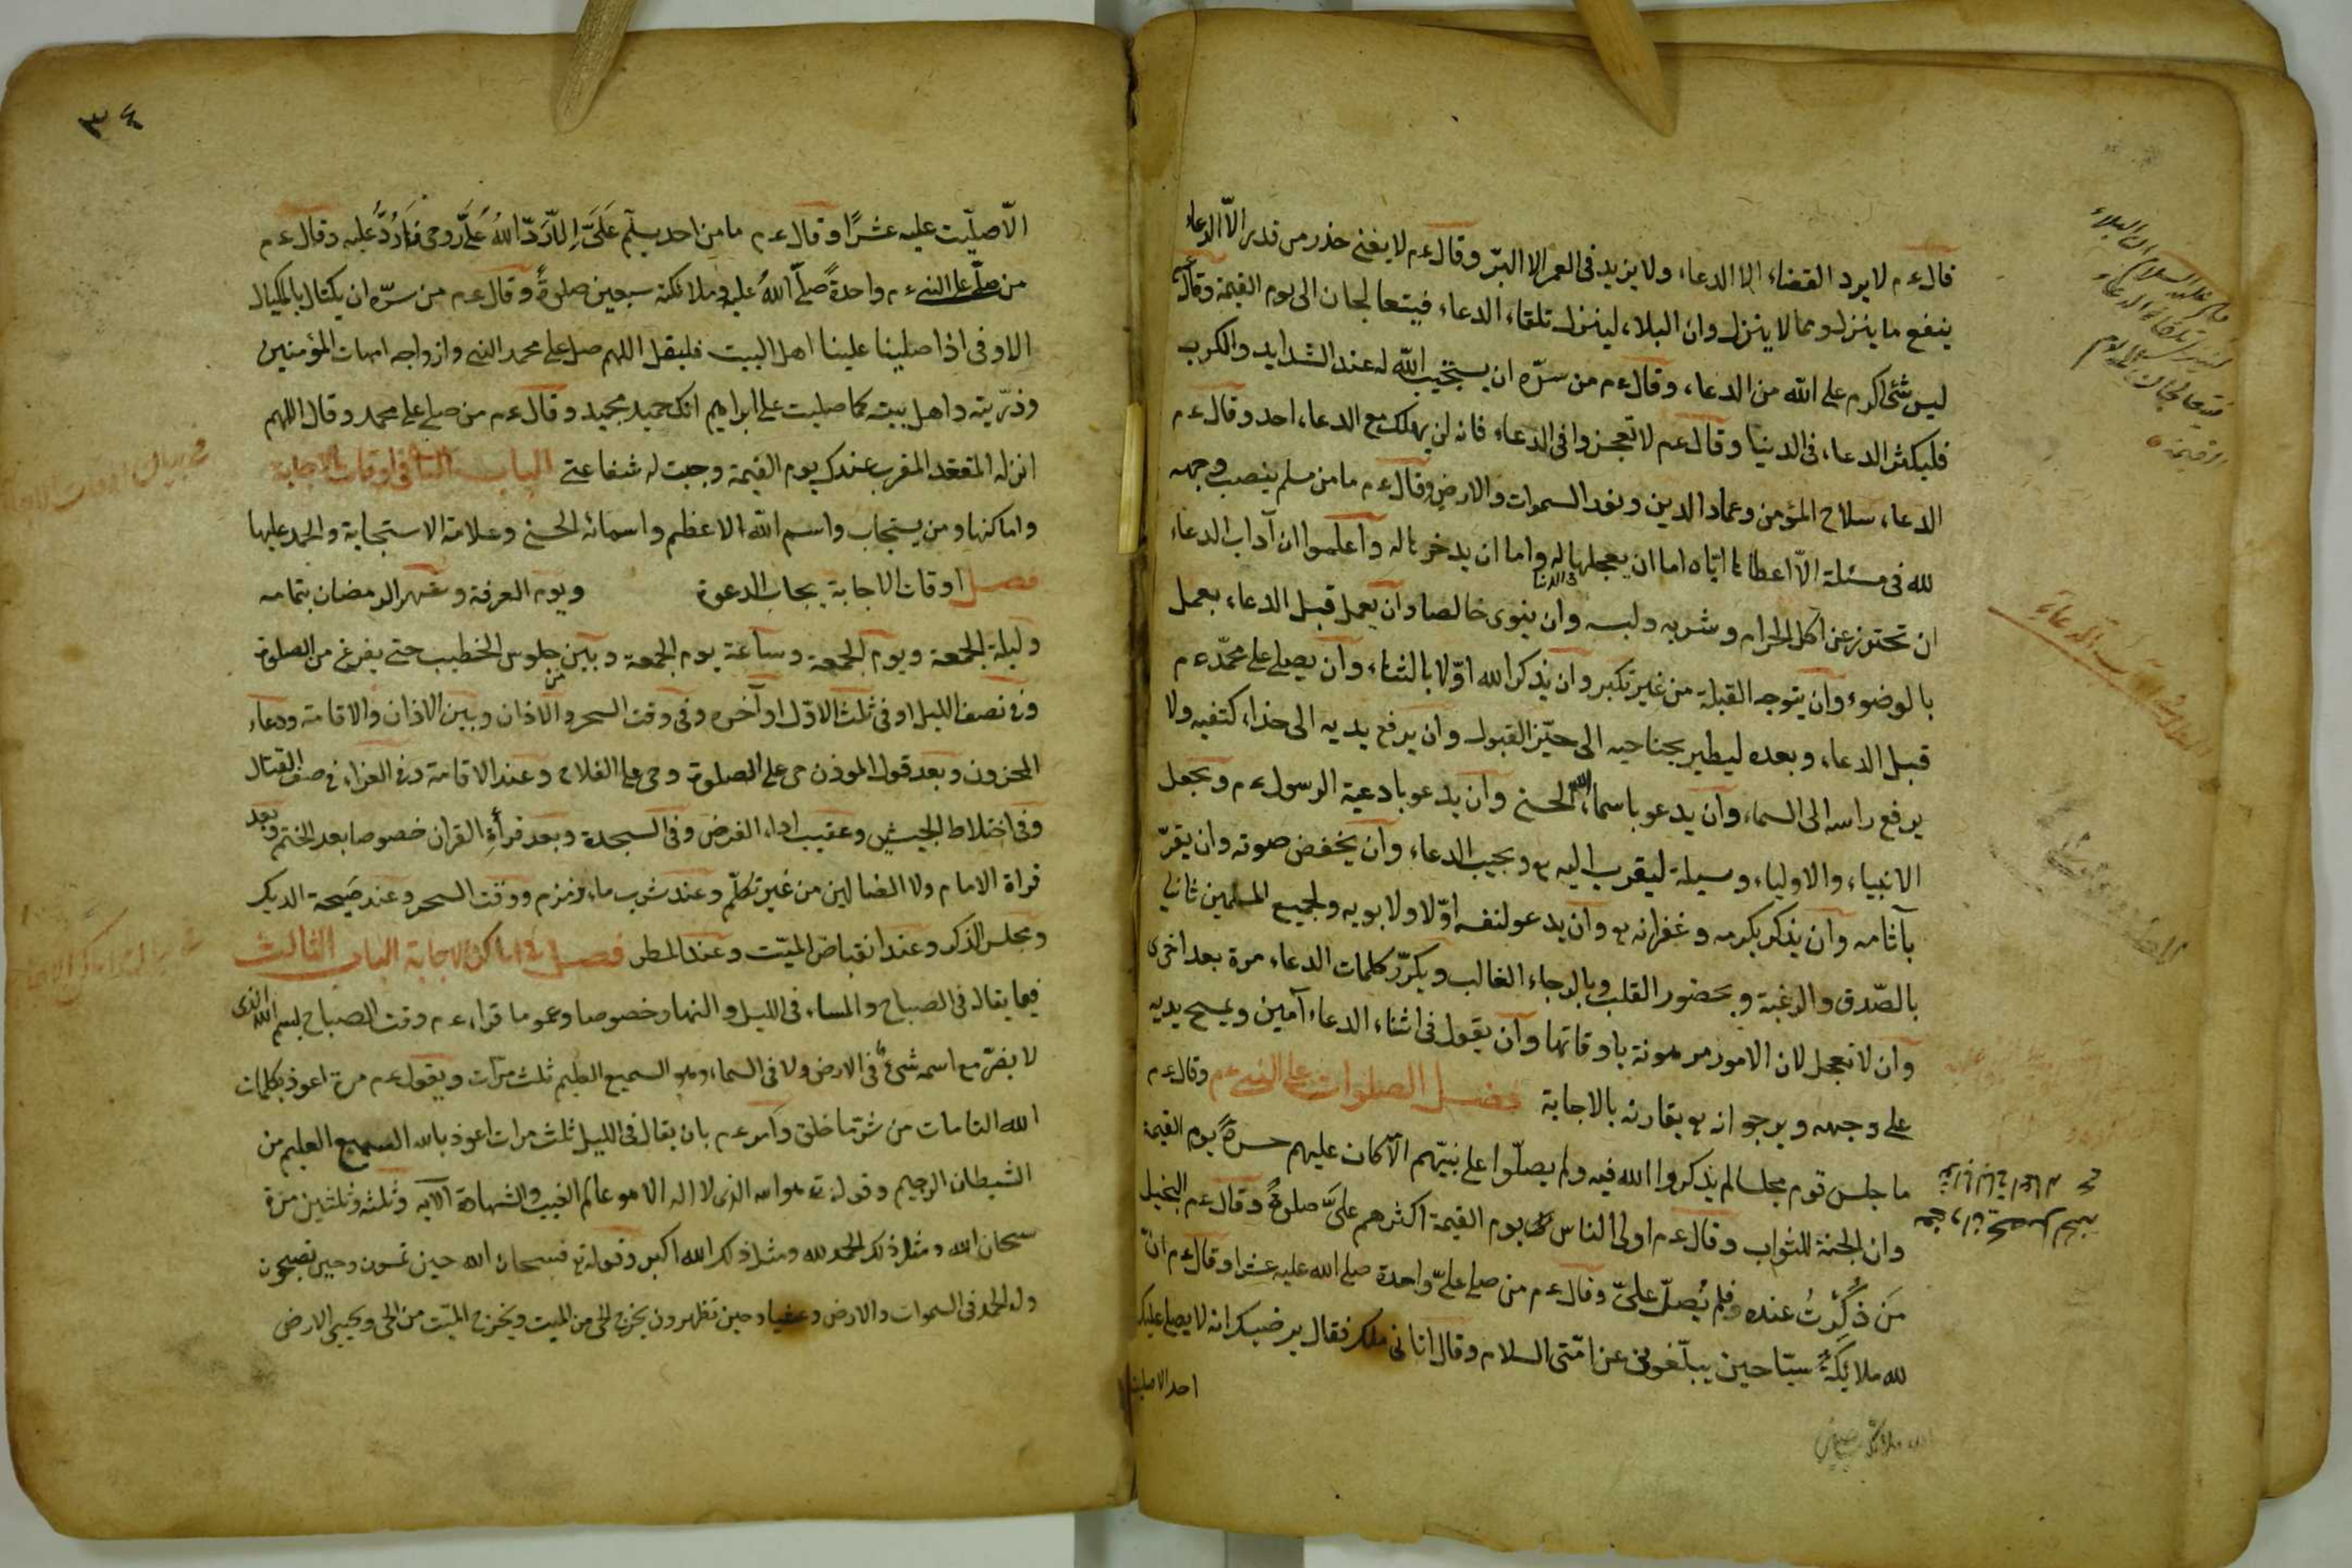 قال ع م لا يرد القضاء الا الدعاء ولا يزيد فى العمر الا البرّ وقال ع م لا يغنى حذر من قدر الاّ الدعاء
ينفع ما ينزل ومما لا ينزل وان البلاء لينزل تلقاء الدعاء فيتعالجان الى يوم القيمة وقال ع م
ليس شئ اكرم على الله من الدعاء وقال ع م من سرّه ان يستجيب الله له عند الشدايد والكرب
فليكثر الدعاء فى الدنيا وقال ع م لا تعجزوا فى الدعاء فانه لن يهلك مع الدعاء احد وقال ع م
الدعاء سلاح المؤمن وعماد الدين ونور السموات والارض وقال ع م ما من مسلم ينصب وجهه
لله فى مسئلة الاّ اعطاها ايّاه اما ان يعجلها له فى الدنيا واما ان يدخرها له واعلموا ان آداب الدعاء
ان تحترز عن اكل الحرام وشربه ولبسه وان ينوى خالصا وان يعمل قبل الدعاء بعمل
بالوضوء وان يتوجه القبلة من غير تكبر وان يذكر الله اوّلا بالثناء وان يصلى على محمّد ع م
قبل الدعاء وبعده ليطير بجناحيه الى حيّز القبول وان يرفع يديه الى حذاء كتفيه ولا
يرفع راسه الى السماء وان يدعو باسماء الله الحسنى وان يدعو بادعية الرسول ع م ويجعل
الانبياء والاولياء وسيلة ليقرب اليه تع ويجيب الدعاء وان يخفض صوته وان يقرّ
بآثامه وان يذكر بكرمه وغفرانه تع وان يدعو لنفسه اوّلا ولابويه ولجميع المسلمين ثانيا
بالصّدق والرغبة وبحضور القلب وبالرجاء الغالب ويكرّر كلمات الدعاء مرة بعد اخرى
وان لا تعجل لان الامور مرهونة باوقاتها وان يقول فى اثناء الدعاء آمين ويمسح يديه
على وجهه ويرجو انه تع يقارنه بالاجابة فصل الصلوات على النبى ع م وقال ع م
ما جلس قوم مجلسا لم يذكروا الله فيه ولم يصلّوا على نبيّهم الاّ كان عليهم حسرة يوم القيمة
وان الجنة للثواب وقال ع م اولى الناس بى يوم القيمة اكثرهم علىّ صلوة وقال ع م البخيل
مَن ذُكِرْتُ عنده فلم يُصلّ علىّ وقال ع م من صلى علىّ واحدة صلى الله عليه عشرا وقال ع م انّ
لله ملايكةً سيّاحين يبلّغونى عن امّتى السلام وقال اتانى ملك فقال يرضيك انه لا يصلى عليك
احد الا صليت
٣٤
الاّ صلّيت عليه عشرًا وقال ع م ما من احد يسلّم عَلَىَّ اِلاّ رَدَّ اللهُ عَلَىَّ روحى فَاَرُدُّ عليه وقال ع م
من صلّى على النبى ع م واحدةً صلّى اللهُ عليه وملائكته سبعين صلوةً وقال ع م من سرّه ان يكتال بالمكيال
الاوفى اذا صلينا علينا اهل البيت فليقل اللهم صل على محمد النبى وازواجه امهات المؤمنين
وذرّيته واهل بيته كما صليت على ابراهيم انك حميد مجيد وقال ع م من صلى على محمد وقال اللهم
انزله المقعد المقرب عندك يوم القيمة وجبت له شفاعتى الباب الثانى فى اوقات الاجابة
واماكنها ومن يستجاب واسم الله الاعظم واسمائه الحسنى وعلامة الاستجابة والحمد عليها
فصل اوقات الاجابة يجاب الدعوة ويوم العرفة وشهر الرمضان بتمامه
وليلة الجمعة ويوم الجمعة وساعة يوم الجمعة وبين جلوس الخطيب حتى يفرغ من الصلوة
وفى نصف الليل او فى ثلث الاوّل او آخره وفى وقت السحر والاذان وبين الاذان والاقامة ودعاء
المحزون وبعد قول الموذن حى على الصلوة وحى على الفلاح وعند الاقامة وفى الغزاء فى صف القتال
وفى اختلاط الجيش وعقيب اداء الفرض وفى السجدة وبعد قرأةِ القران خصوصا بعد الختم وبعد
قراة الامام ولا الضالين من غير تكلّم وعند شرب ماء زمزم ووقت السحر وعند صَيحة الديك
ومجلس الذكر وعند انقباض الميّت وعند المطر فصل فى اماكن الاجابة الباب الثالث
فيما يقال فى الصباح والمساء فى الليل والنهار خصوصا وعموما قراء ع م وقت الصباح بسم الله الذى
لا يضرّ مع اسمه شىءٌ فى الارض ولا فى السماء وهو السميع العليم ثلث مرّات ويقول ع م مرة اعوذ بكلمات
الله التامات من شرّ ما خلق وامر ع م بان يقال فى الليل ثلث مرات اعوذ بالله السميع العليم من
الشيطان الرجيم وقوله تع هو الله الذى لا اله الا هو عالم الغيب والشهادة الآيه وثلثه وثلثين مرة
سبحان الله ومثل ذلك الحمد لله ومثل ذلك الله اكبر وقوله تع فسبحان الله حين تمسون وحين تصبحون
وله الحمد فى السموات والارض وعشيا وحين تظهرون يخرج الحى من الميت ويخرج الميّت من الحى ويحيى الارض